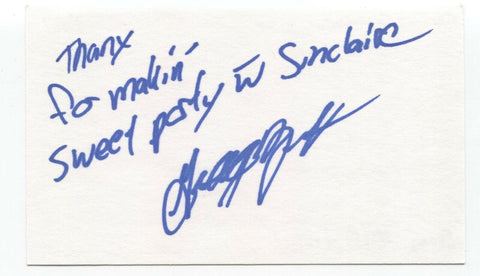 Thanx
for makin'
sweet party w Sinclaire